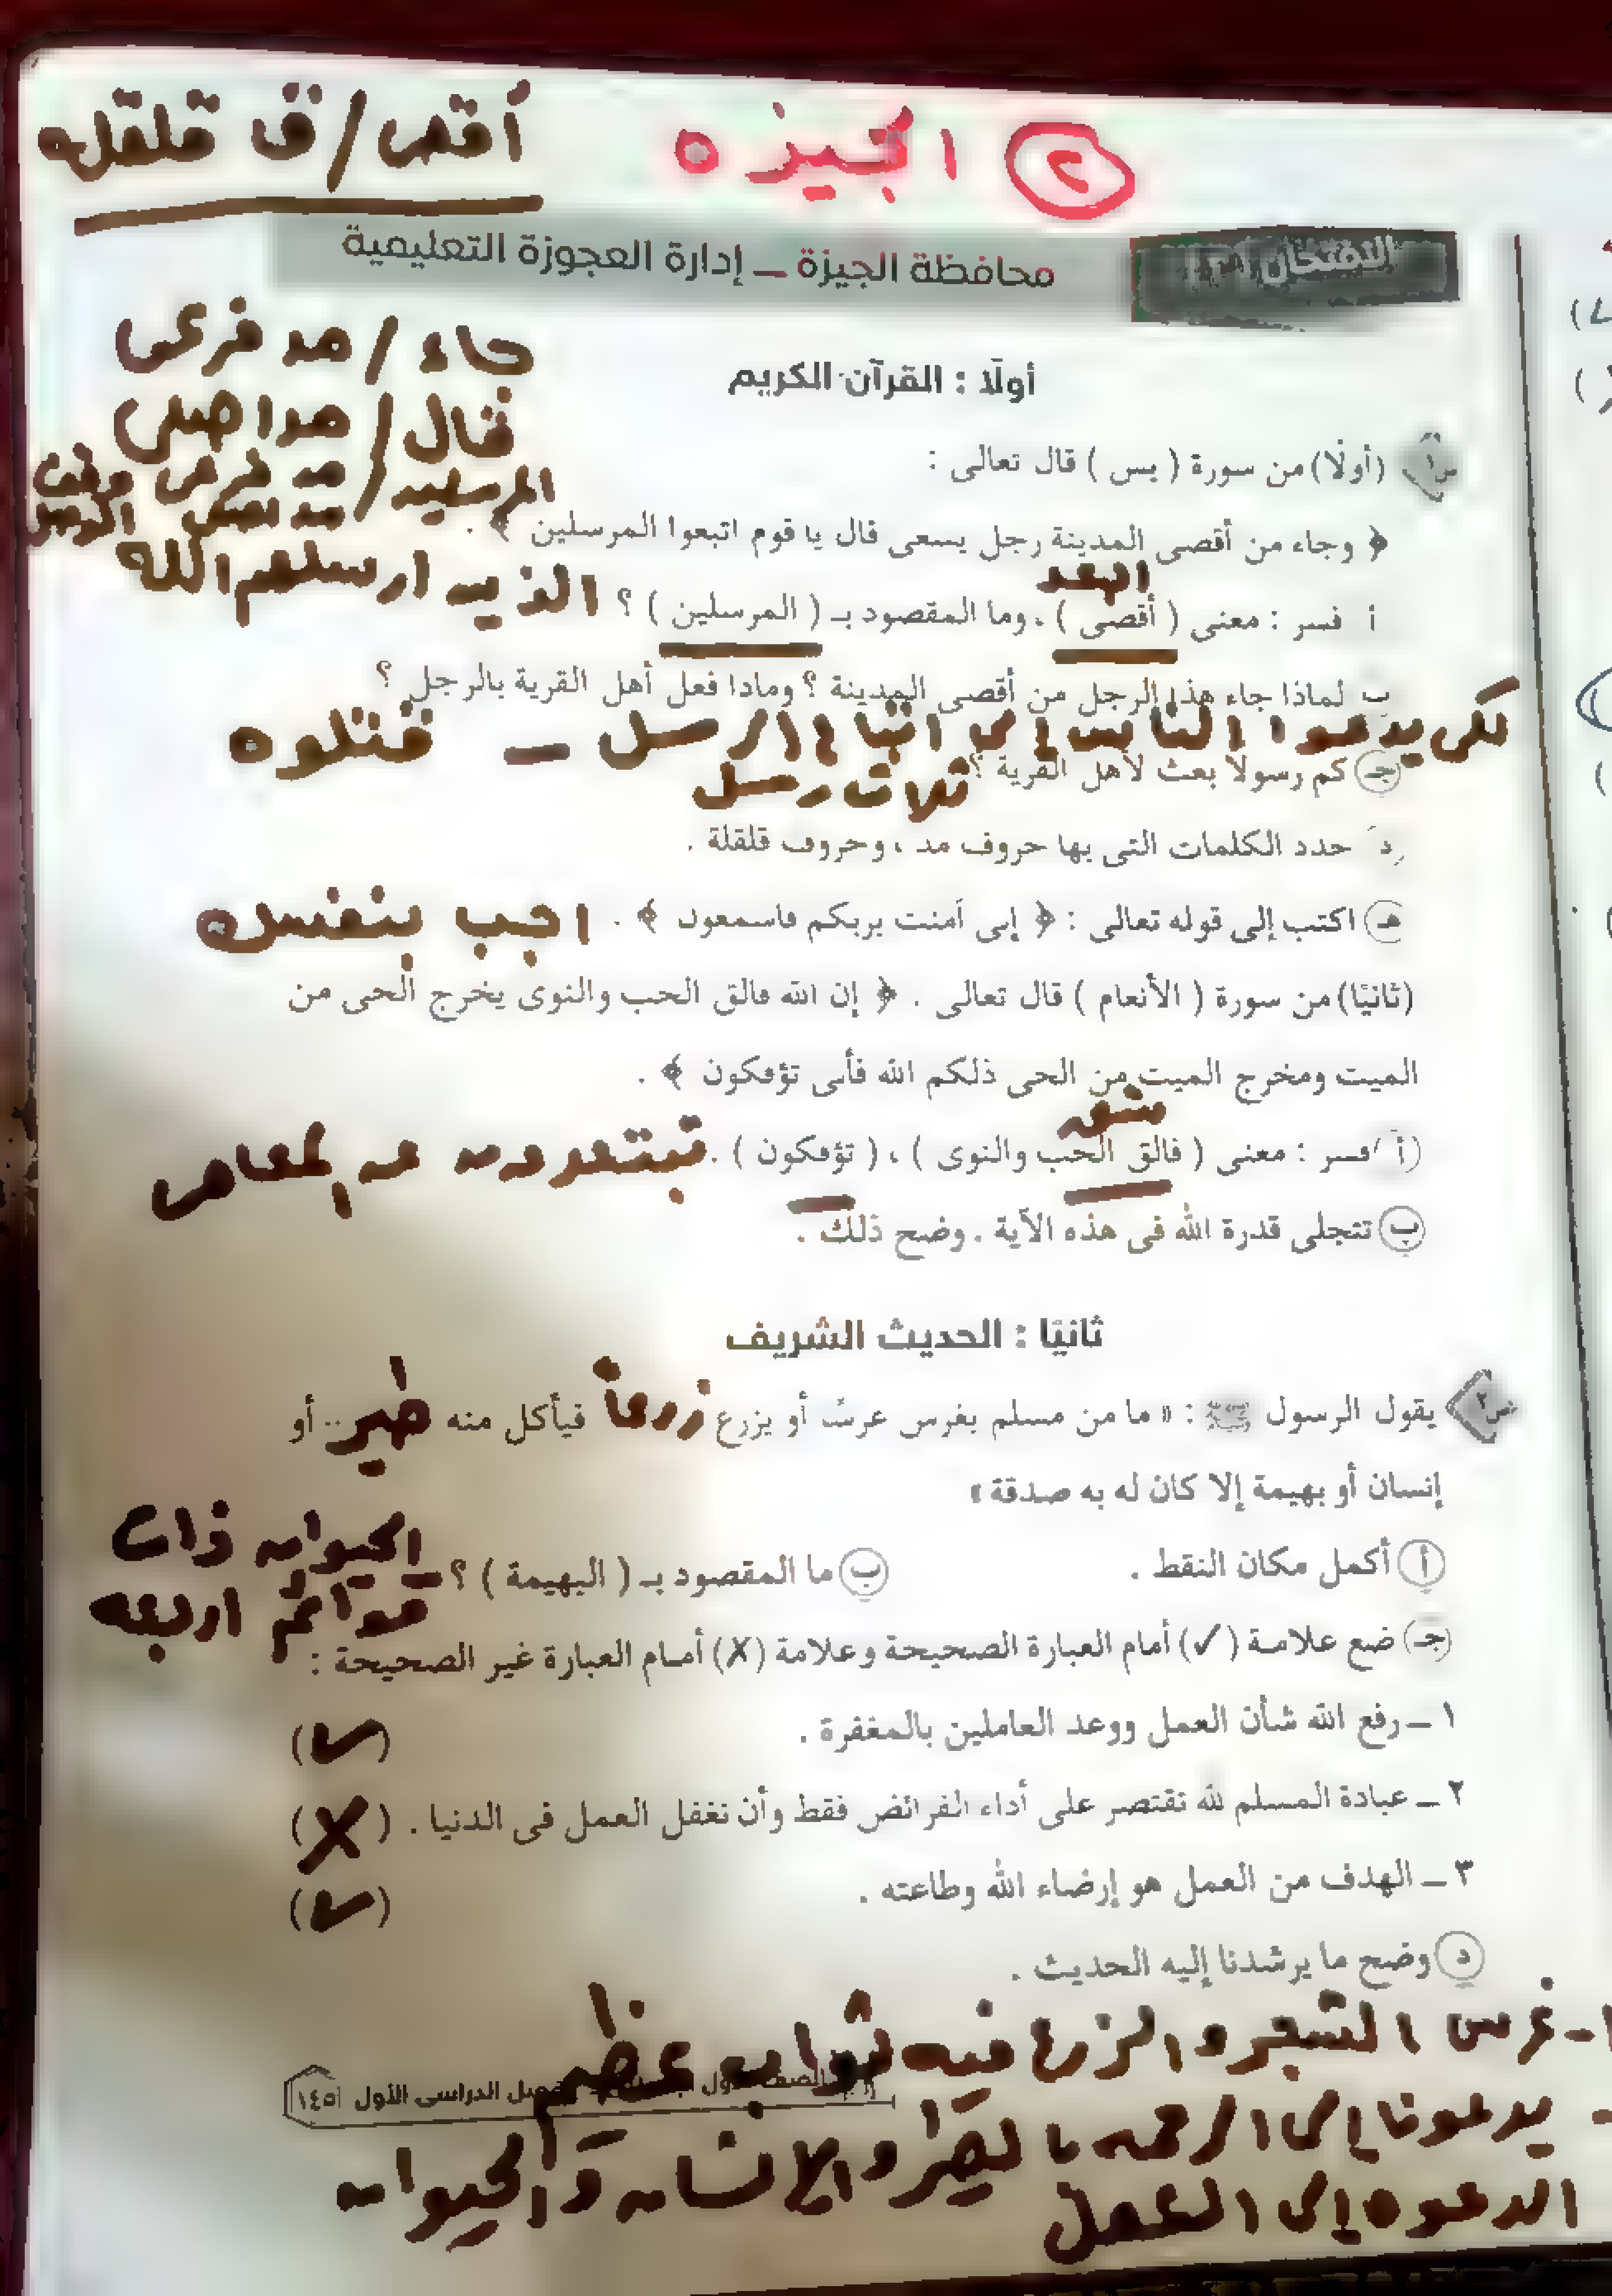 أقصى / ق قلقله
٢ الجيزه
محافظة الجيزة – إدارة العجوزة التعليمية
جاء / مد فرعى
قال / مد اصلى
أولًا : القرآن الكريم
س١ (أولًا) من سورة ( يس ) قال تعالى :
المرسلين / مد
﴿ وجاء من أقصى المدينة رجل يسعى قال يا قوم اتبعوا المرسلين ﴾ .
ابعد
أ فسر : معنى ( أقصى ) ، وما المقصود بـ ( المرسلين ) ؟ الذين ارسلهم الله
ب لماذا جاء هذا الرجل من أقصى المدينة ؟ وماذا فعل أهل القرية بالرجل ؟
لكى يدعوا الناس إلى اتباع الرسل – قتلوه
جـ كم رسولًا بعث لأهل القرية ؟ ثلاث رسل
د حدد الكلمات التى بها حروف مد ، وحروف قلقلة .
هـ اكتب إلى قوله تعالى : ﴿ إنى آمنت بربكم فاسمعون ﴾ . اجب بنفسك
(ثانيًا) من سورة ( الأنعام ) قال تعالى . ﴿ إن الله فالق الحب والنوى يخرج الحى من
الميت ومخرج الميت من الحى ذلكم الله فأنى تؤفكون ﴾ .
شق
أ فسر : معنى ( فالق الحب والنوى ) ، ( تؤفكون ) . تبتعدون عن
ب تتجلى قدرة الله فى هذه الآية . وضح ذلك .
ثانيًا : الحديث الشريف
س٢ يقول الرسول ﷺ : « ما من مسلم يغرس غرسًا أو يزرع زرعاً فيأكل منه طير .. أو
إنسان أو بهيمة إلا كان له به صدقة »
أ أكمل مكان النقط .
ب ما المقصود بـ ( البهيمة ) ؟ الحيوان ذات
قوائم اربعه
جـ ضع علامة (✓) أمام العبارة الصحيحة وعلامة (✗) أمام العبارة غير الصحيحة :
١ – رفع الله شأن العمل ووعد العاملين بالمغفرة . (✓)
٢ – عبادة المسلم لله تقتصر على أداء الفرائض فقط وأن نغفل العمل فى الدنيا . (✗)
٣ – الهدف من العمل هو إرضاء الله وطاعته . (✓)
د وضح ما يرشدنا إليه الحديث .
١- غرس الشجر والزرع فيه ثواب عظيم
الدراسى الأول ١٤٥
- يدعونا إلى الرحمه بالطير والإنسان والحيوان
الدعوه إلى العمل